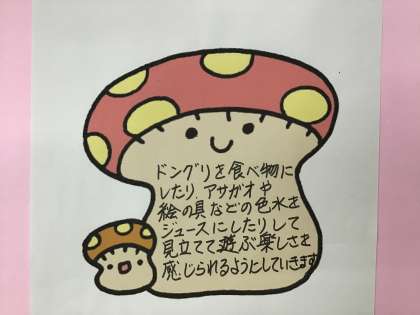 ドングリを食べ物に
したり、アサガオや
絵の具などの色水を
ジュースにしたりして
見立てて遊ぶ楽しさを
感じられるようにしていきます